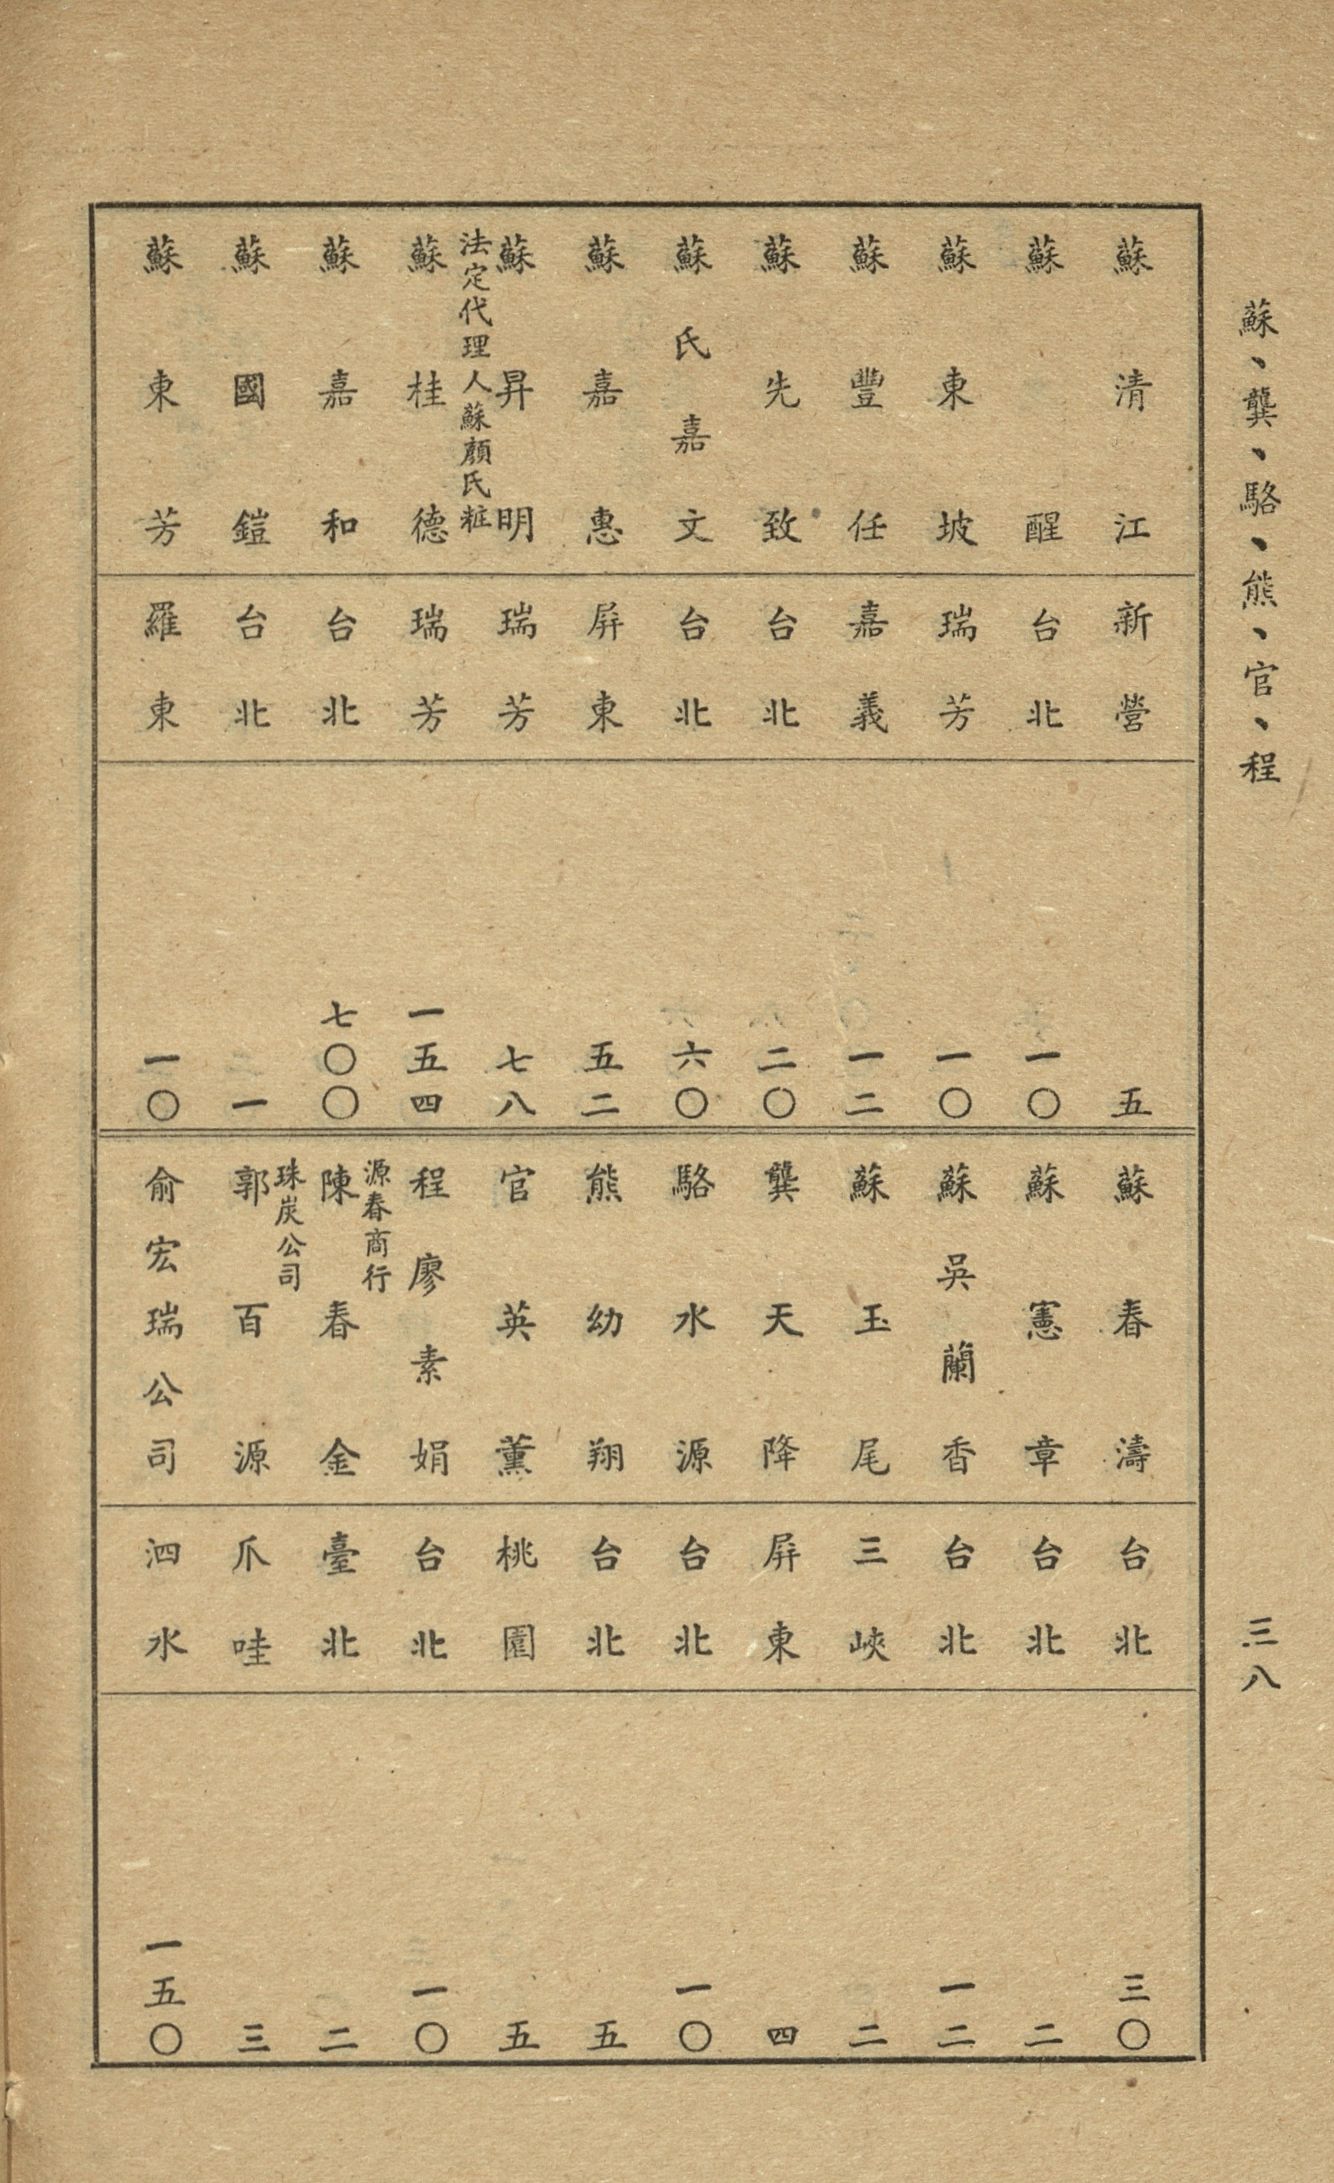 蘇、龔、駱、熊、官、程
三八
蘇清江 新營 五
蘇醒 台北 一〇
蘇東坡 瑞芳 一〇
蘇豐任 嘉義 一二
蘇先致 台北 二〇
蘇氏嘉文 台北 六〇
蘇嘉惠 屏東 五二
蘇昇明 瑞芳 七八
法定代理人蘇顏氏粧
蘇桂德 瑞芳 一五四
蘇嘉和 台北 七〇〇
蘇國鎧 台北 一
蘇東芳 羅東 一〇
蘇春濤 台北 三〇
蘇憲章 台北 二
蘇吳蘭香 台北 一二
蘇玉尾 三峽 二
龔天降 屏東 四
駱水源 台北 一〇
熊幼翔 台北 五
官英薰 桃園 五
程廖素娟 台北 一〇
源春商行
陳春金 臺北 二
珠炭公司
郭百源 爪哇 三
俞宏瑞公司 泗水 一五〇